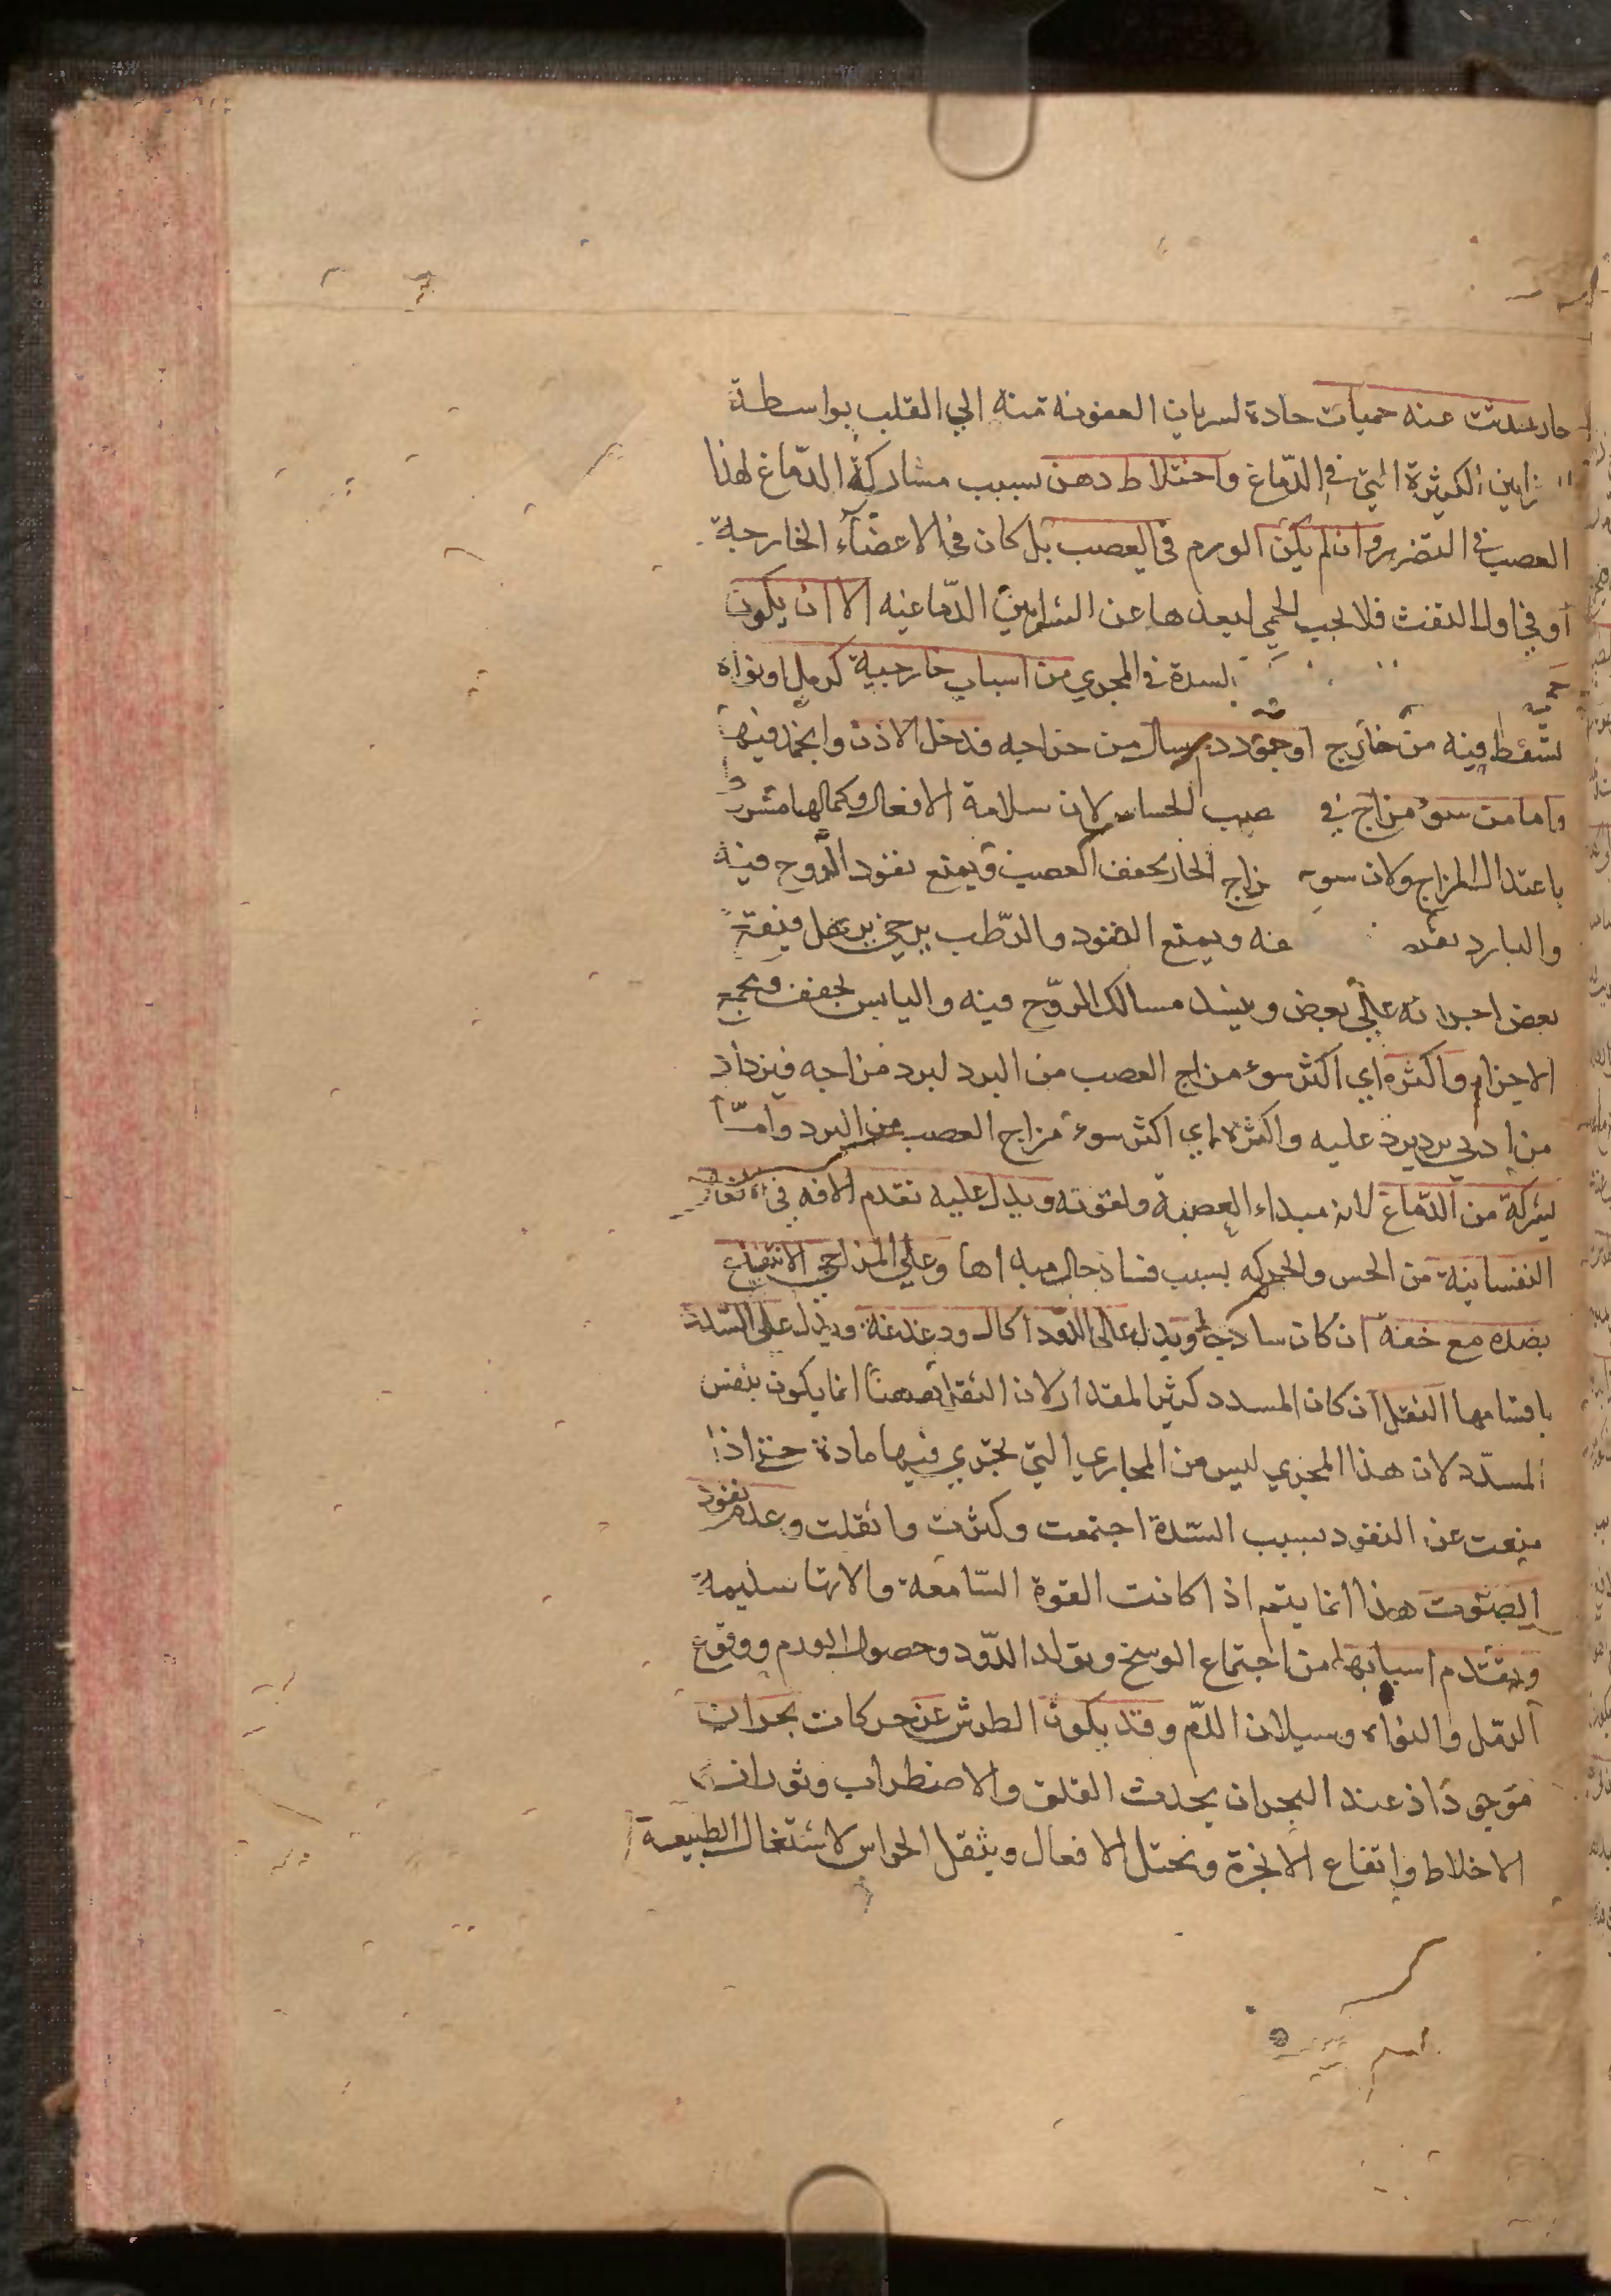 حار عندث عنه حميات حادة لسريان العفونه منه الي القلب بواسطة
زاين الكثيرة التي في الدماغ واختلاط دهن بسبب مشاركة الدماغ لهذا
العصب في التضرر وان لم يكن الورم في العصب بل كان في الاعضاء الخارجية
او في اول الثقب فلا يجب الحمي لبعدها عن الشرايين الدماغيه الا ان يكون
السدة في المجري من اسباب خارجية كرمل او نواة
تسقط فيه من خارج او جمود دم سال من خراجه فدخل الاذن وانجمد فيها
واما من سوء مزاج في صب الحساس لان سلامة الافعال وكمالها مشروط
باعتدال المزاج ولان سوء زاج الحار يجفف العصب ويمنع نفود الروح فيه
والبارد عنه ويمنع النفود والرطب يرخي فيقع
بعض اجزائه علي بعض وينسد مسالك الروح فيه واليابس يجفف ويجمع
الاجزاء واكثره اي اكثر سوء مزاج العصب من البرد لبرد مزاجه فيزداد
من ادني برد يرد عليه واكثره اي اكثر سوء مزاج العصب من البرد واما
بشركة من الدماغ لانه مبداء العصبة ولقوته ويدل عليه تقدم الافه في افعال
النفسانية من الحس والحركه بسبب فساد حال مبداها وعلي المزاجي الانتفاع
بضده مع خفة ان كان سادجا ويدل علي الدود اكال ودغدغة ويدل علي السدة
باقسامها الثقل ان كان المسدد كثير المقدار لان الثقل ههنا انما يكون بنفس
المسدد لان هذا المجري ليس من المجاري التي تجري فيها مادة حتي اذا
منعت عن النفود بسبب السدة اجتمعت وكثرت واثقلت وعدم نفود
الصوت هذا انما يتم اذا كانت القوة السامعة والاتها سليمة
ويتقدم اسبابها من اجتماع الوسخ وتولد الدود وحصول الورم ووقوع
الرمل والنواه وسيلان الدم وقد يكون الطرش عن حركات بحران
موجود اذ عند البحران يحدث القلق والاضطراب وثوران
الاخلاط وارتفاع الابخرة وتختل الافعال ويثقل الحواس لاشتغال الطبيعة